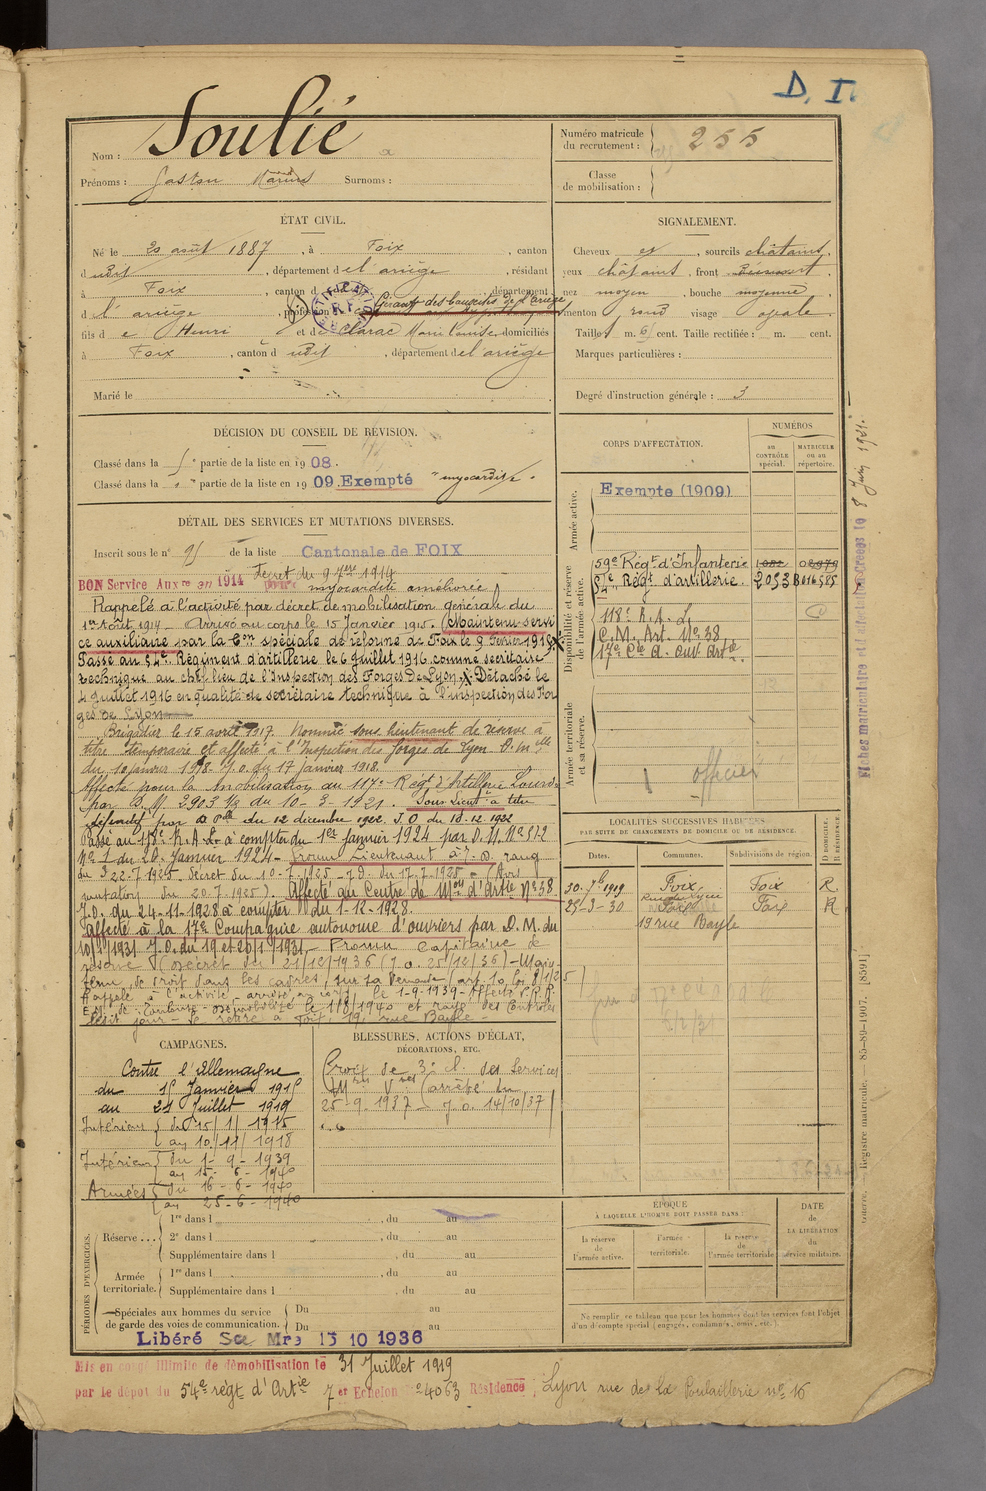 D. I.
Nom : Soulié
Prénoms : Gaston Marius Surnoms :
Numéro matricule du recrutement : 255
Classe de mobilisation :
ÉTAT CIVIL.
Né le 20 août 1887, à Foix, canton
dudit, département de l'ariège, résidant
à Foix, canton d département
d l'ariège, profession Gérant des bauxites de l'ariège
fils de Henri et de Clarac Marie Louise, domiciliés
à Foix, canton dudit, département de l'ariège
Marié le
SIGNALEMENT.
Cheveux et, sourcils châtains,
yeux châtains, front
nez moyen, bouche moyenne,
menton rond visage ovale.
Taille 1 m. 61 cent. Taille rectifiée : m. cent.
Marques particulières :
Degré d'instruction générale : 3
DÉCISION DU CONSEIL DE RÉVISION.
Classé dans la partie de la liste en 1908.
Classé dans la " partie de la liste en 1909. Exempté "myocardite".
DÉTAIL DES SERVICES ET MUTATIONS DIVERSES.
Inscrit sous le n° de la liste Cantonale de FOIX
Décret du 9 7bre 1914
BON Service Auxre en 1914 myocardite améliorée
Rappelé à l'activité par décret de mobilisation générale du
1er Août 1914 - Arrivé au corps le 15 Janvier 1915. (Maintenu servi
ce auxiliaire par la Con spéciale de réforme de Foix le 9 Février 1916
Passe au 54e Régiment d'artillerie le 6 Juillet 1916 comme secrétaire
technique au chef lieu de l'Inspection des Forges De Lyon. X Détaché le
4 Juillet 1916 en qualité de secrétaire technique à l'inspection des For
ges de Lyon
Brigadier le 15 avril 1917. Nommé sous lieutenant de réserve à
titre temporaire et affecté à l'Inspection des forges de Lyon. D. mlle
du 10 janvier 1918. J.O. du 17 janvier 1918.
Affecté pour la mobilisation au 117e Régt d'Artillerie Lourde
par D.M. 2903 1/3 du 10-3-1921. Sous Lieut à titre
définitif par D. Plle du 12 décembre 1922. J.O du 18.12.1922
Passé au 118e R.A.L. à compter du 1er Janvier 1924 par D.M. No 512
No 1 du 20 Janvier 1924 - Promu Lieutenant à T.D. rang
du 22.7.1925 Décret du 10-7.1925 - J.O. du 17.7.1925 - (Avis
mutation du 20.7.1925). Affecté au Centre de Mon d'Artie No 38.
J.O. du 24-11-1928 à compter du 1-12-1928.
Affecté à la 17e Compagnie autonome d'ouvriers par D.M. du
10/1/1931 J.O. du 19 et 20/1/1931 - Promu Capitaine de
réserve (Décret du 21/12/1936 (J.O. 25/12/36) - Main
tenu de droit dans les cadres, sur sa demande (art. 10, loi 8/1/25)
Rappelé à l'activité, arrivé au corps le 1-9-1939 - Affecté
démobilisé le 1/8/1940 et rayé des contrôles
ledit jour - Se retire à Foix, 19, rue Bayle -
CORPS D'AFFECTATION.
NUMÉROS
au CONTRÔLE spécial.
MATRICULE ou au répertoire.
Armée active.
Exempté (1909)
Disponibilité et réserve de l'armée active.
59e Régt d'Infanterie
54e Régt d'artillerie. 2053
118e R.A.L
C.M. Art. No 38
17e Cie A. Ouv. Artie.
Armée territoriale et sa réserve.
officier
LOCALITÉS SUCCESSIVES HABITÉES
PAR SUITE DE CHANGEMENTS DE DOMICILE OU DE RÉSIDENCE.
Dates. Communes. Subdivisions de région. D DOMICILE, R RÉSIDENCE
30. 7b 1919 Foix, Foix R
25-3-30 Foix Foix R
19 rue Bayle
Fiches matriculaire et d'affectation créées le 8 Juin 1931.
CAMPAGNES.
Contre l'Allemagne
du 15 Janvier 1915
au 21 Juillet 1919
Intérieur du 15/1/1915
au 10/11/1918
Intérieur du 1-9-1939
au 15-6-1940
Armées du 16-6-1940
au 25-6-1940
BLESSURES, ACTIONS D'ÉCLAT,
DÉCORATIONS, ETC.
Croix de 3e cl. des Services
Mres Vres (arrêté du
25-9-1937 - J.O. 14/10/37)
PÉRIODES D'EXERCICES.
Réserve ... 1re dans l , du au
2e dans l , du au
Supplémentaire dans l , du au
Armée territoriale. 1re dans l , du au
Supplémentaire dans l , du au
Spéciales aux hommes du service de garde des voies de communication. Du au
Du au
Libéré Sce Mre 15 10 1936
ÉPOQUE
À LAQUELLE L'HOMME DOIT PASSER DANS :
la réserve de l'armée active.
l'armée territoriale.
la réserve de l'armée territoriale
DATE de LA LIBÉRATION du service militaire.
Ne remplir ce tableau que pour les hommes dont les services font l'objet
d'un décompte spécial (engagés, condamnés, omis, etc.).
Registre matricule. — 85-89-1907. [8591]
Mis en congé illimité de démobilisation le 31 Juillet 1919
par le dépôt du 54e régt d'Artie 7er Echelon No 4063 Résidence, Lyon rue de la Poulaillerie no 16